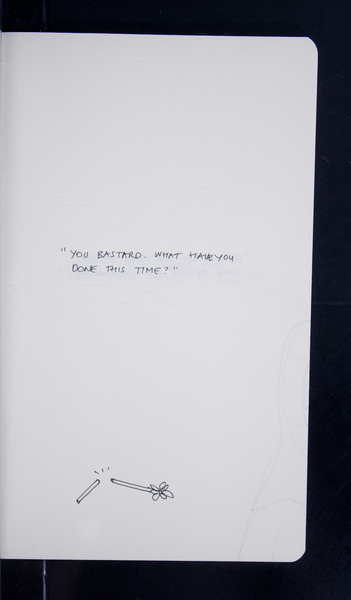 "YOU BASTARD. WHAT HAVE YOU
DONE THIS TIME?"